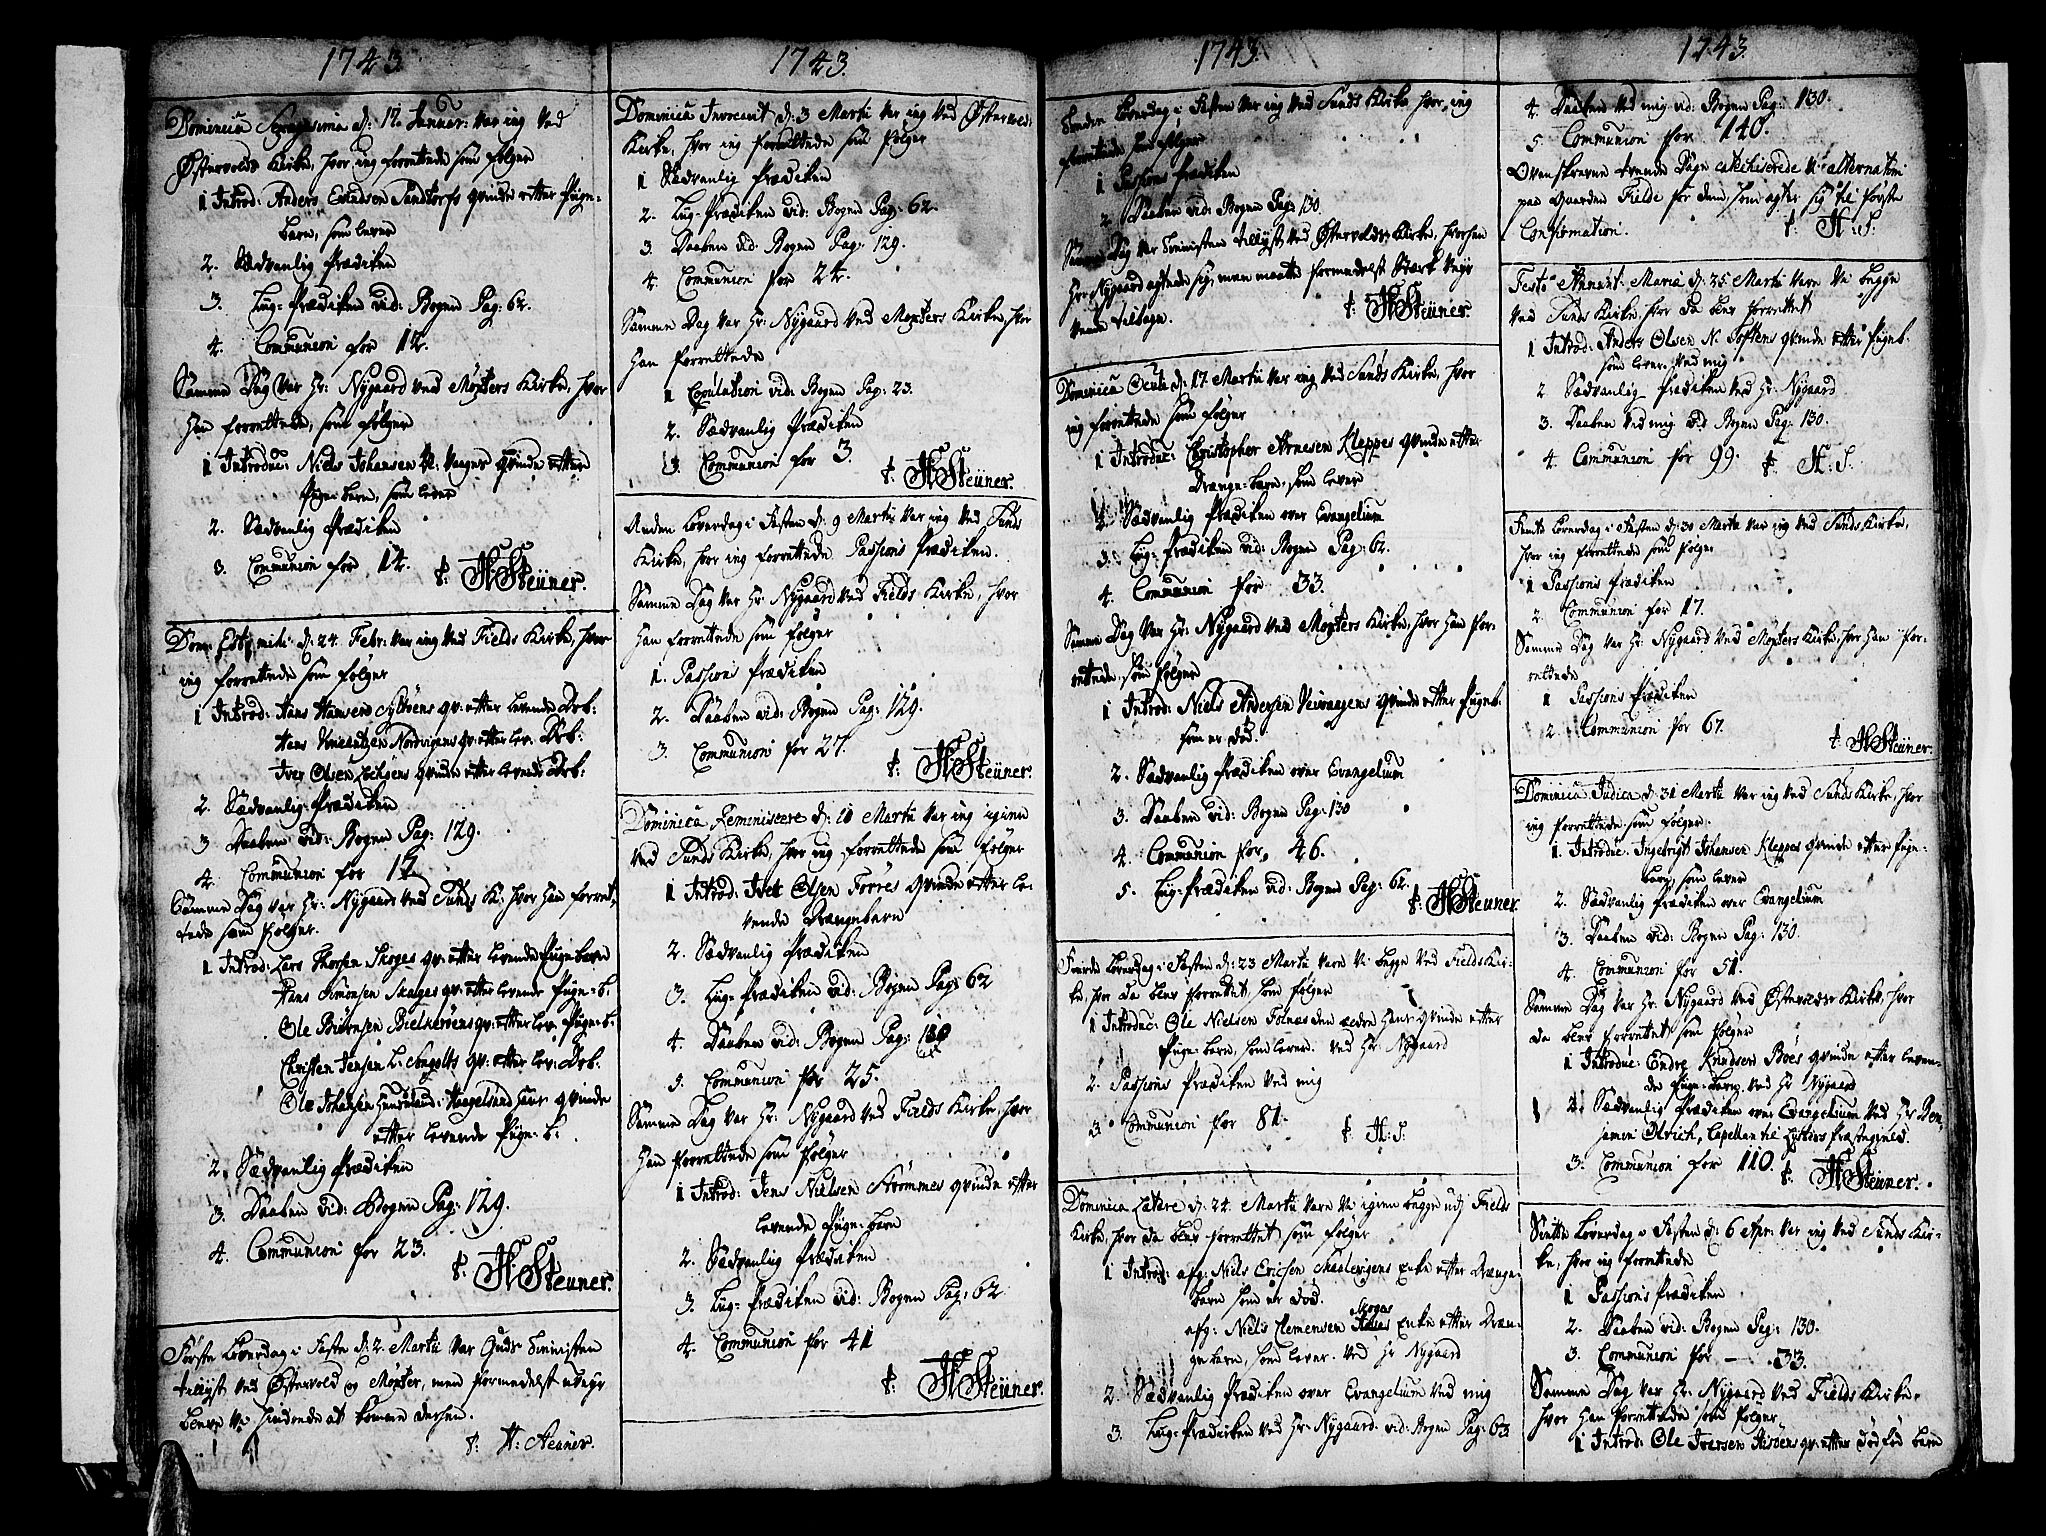 1743
Dominica d: 17 Januar: var jeg ved
Østervolds Kirke, hvor jeg forrettede som følger
1 Introd: Anders Qvinde etter Pige-
barn, som lever
2. Sædvanlig Prædiken
3. Liig-Prædiken vid: Bogen Pag: 62.
4. Communion for 12.
Samme Dag var Hr: Nygaard ved Møgsters Kirke, hvor
Han forrettede, som følger
1 Introdu: Niels Johansen qvinde etter
Pige barn, som lever
2. Sædvanlig Prædiken
3. Communion for 12. H Steüner.
Dom: Esto mihi d: 24. Febr: var jeg ved Fields Kirke, hvor
jeg forrettede som følger
1 Introd: Hans Hansen qv: etter levende Drb:
Hans qv: etter lev: Drb:
Iver Olsen qvinde etter levende Drb:
2. Sædvanlig Prædiken
3 Daaben vid: Bogen Pag: 129.
4. Communion for 17
Samme Dag var Hr: Nygaard ved Sunds K: hvor Han forret-
tede som følger.
1 Introd: Lars Thorsen Skoges qv: etter levende Pige barn
Hans Simonsen qv: etter levende Pige-b:
Ole Biørnsen qv: etter lev: Pige-b:
Christen Jensen qv: etter lev: Drb:
Ole Johansen qvinde
etter levende Pige-b:
2. Sædvanlig Prædiken
3. Daaben vid: Bogen Pag: 129.
4. Communion for 23. H Steuner.
Første Løverdag i Faste d: 2. Martii var Guds Tienisten
tillyst ved Østervold og Møgster, men formedelst uveyr
bleve vi hindrede at komme derhen.
H: Steüner.
1743.
Dominica Invocavit d: 3 Martii var jeg ved Østervolds
Kirke, hvor jeg forrettede som følger
1 Sædvanlig Prædiken
2. Liig-Prædiken vid: Bogen Pag: 62.
3. Daaben vid: Bogen Pag: 129.
4. Communion for 24.
Samme Dag var Hr: Nygaard ved Møgsters Kirke, hvor
Han forrettede
1 Copulation vid: Bogen Pag: 23.
2. Sædvanlig Prædiken
3. Communion for 3. H Steüner.
Anden Løverdag i Fasten d: 9 Martii var jeg ved Sunds
Kirke, hvor jeg forrettede Passions Prædiken.
Samme Dag var Hr: Nygaard ved Fields Kirke, hvor
Han forrettede som følger
1. Passions Prædiken
2. Daaben vid: Bogen Pag: 129.
3. Communion for 27. H Steüner.
Dominica Reminiscere d: 10 Martii var jeg igien
ved Sunds Kirke, hvor jeg forrettede som følger
1 Introd: Ivet Olsen Torres qvinde etter le-
vende Drengebarn
2. Sædvanlig Prædiken
3. Liig-Prædiken vid: Bogen Pag: 62
4. Daaben vid: Bogen Pag:
5. Communion for 25.
Samme Dag var Hr: Nygaard ved Fields Kirke, hvor
Han forrettede som følger
1 Introd: Jens Nielsen Strømmes qvinde etter
levende Pige-barn
2. Sædvanlig Prædiken
3. Liig-Prædiken vid: Bogen Pag: 62
4. Communion for 41
H Steüner.
1743.
Tredie Løverdag i Fasten var jeg ved Sunds Kirke hvor jeg
forrettede som følger
1 Passions Prædiken
2. Daaben vid: Bogen Pag: 130.
Samme Dag var Tienisten tillyst ved Østervolds Kirke, hvorhen
Hr: Nygaard agtede sig, men maatte formedelst Stærk Veyr
vende tilbage. H Steüner.
Dominica Oculi d: 17. Martii var jeg ved Sunds Kirke, hvor
jeg forrettede som følger
1 Introduc: Christopher Arnesen Kleppes qvinde etter
Drænge-barn, som lever
2. Sædvanlig Prædiken over Evangelium
3. Liig-Prædiken vid: Bogen Pag: 62.
4. Communion for 33.
Samme Dag var Hr: Nygaard ved Møgsters Kirke, hvor Han for-
rettede som følger
1 Introd: Niels Andersen Veivaagens qvinde etter Pigeb:
som er død.
2. Sædvanlig Prædiken over Evangelium
3. Daaben vid: Bogen Pag: 130
4. Communion for 46.
5. Liig-Prædiken vid: Bogen Pag: 62.
H Steuner.
Fierde Løverdag i Fasten d: 23 Martii vare vi begge ved Fields Kir-
ke, hvor da blev forrettet, som følger
1 Introduc: Ole Nielsen Folnæs den ældre Hans qvinde etter
Pige-barn, som lever. ved Hr: Nygaard
2. Passions Prædiken ved mig
3. Communion for 81. H: S.
Dominica Lætare d: 24. Martii vare vi igien begge udi Fields
Kirke, hvor da blev forrettet som følger
1 Introd: afg: Niels Ericsen Enke etter Drænge-
barn som er død.
afg: Niels Clemensen Skoges Enke etter Dræn-
ge barn, som lever. ved Hr Nygaard
2. Sædvanlig Prædiken over Evangelium ved mig
3. Liig-Prædiken ved Hr: Nygaard vid: Bogen Pag: 63
1743.
4. Daaben ved mig vid: Bogen Pag: 130.
5. Communion for 140.
Ovenskrevne tvende Dage catechiserede vi alternatim
paa Gaarden Fielde for dem, som agter sig til første
Confirmation. H: S:
Festo Annunt: Mariæ d: 25 Martii vare vi begge
ved Sunds Kirke, hvor da blev forrettet
1 Introd: Anders Olsen N. Toftens qvinde etter Pigeb:
som lever. ved mig
2 Sædvanlig Prædiken ved Hr: Nygaard
3. Daaben ved mig vid Bogen Pag: 130.
4. Communion for 99. H: S.
Femte Løverdag i Fasten d: 30 Martii var jeg ved Sunds Kirke,
hvor jeg forrettede som følger
1 Passions Prædiken
2. Communion for 17.
Samme Dag var Hr: Nygaard ved Møgsters Kirke, hvor Han for-
rettede
1 Passions Prædiken
2. Communion for 67. H Steüner.
Dominica Judica d: 31 Martii var jeg ved Sunds Kirke, hvor
jeg forrettede som følger.
1. Introduc: Ingebrigt Johansen Kleppes qvinde etter Pige-
barn, som lever
2. Sædvanlig Prædiken over Evangelium
3. Daaben vid: Bogen Pag: 130.
4. Communion for 51.
Samme Dag var Hr: Nygaard ved Østervolds Kirke, hvor
da blev forrettet som følger
1 Introduc: Endre Knudsen Boes qvinde etter leven-
de Pige-barn. ved Hr Nygaard
2. Sædvanlig Prædiken over Evangelium ved Hr: Ben-
jamin Ulrich, Capellan til Præstegield.
3. Communion for 110. H Steuner.
Siette Løverdag i Fasten d: 6 Apr: var jeg ved Sunds Kir-
ke, hvor jeg forrettede
1 Passions Prædiken
2. Daaben vid: Bogen Pag: 130.
3. Communion for — 33.
Samme Dag var Hr: Nygaard ved Fields Kirke,
hvor Han forrettede som følger
1 Introd: Ole Iversen qv: etter dødfød barn